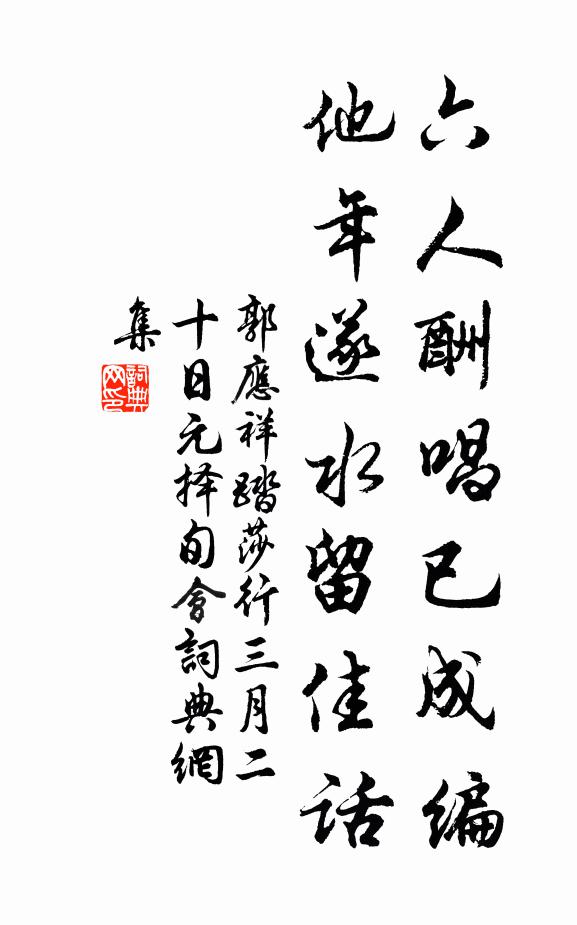 六人酬唱已成编
他年遂水留佳话
郭應祥踏莎行三月二
十日元择旬會詞典網
集
詞典網印